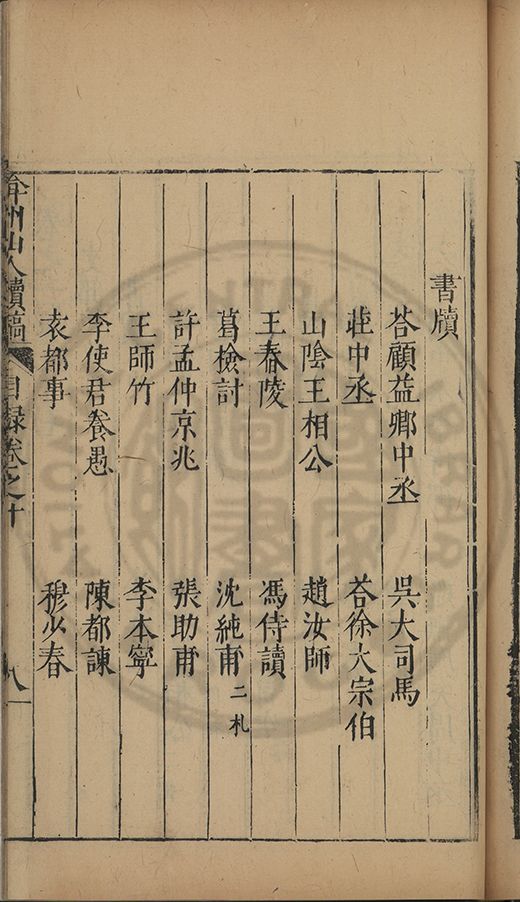 書牘
荅顧益卿中丞　吳大司馬
莊中丞　荅徐大宗伯
山陰王相公　趙汝師
王春陵　馮侍讀
葛檢討　沈純甫二札
許孟仲京兆　張助甫
王師竹　李本寧
李使君養愚　陳都諫
袁都事　穆少春
弇州山人續稿　目録卷之十　八